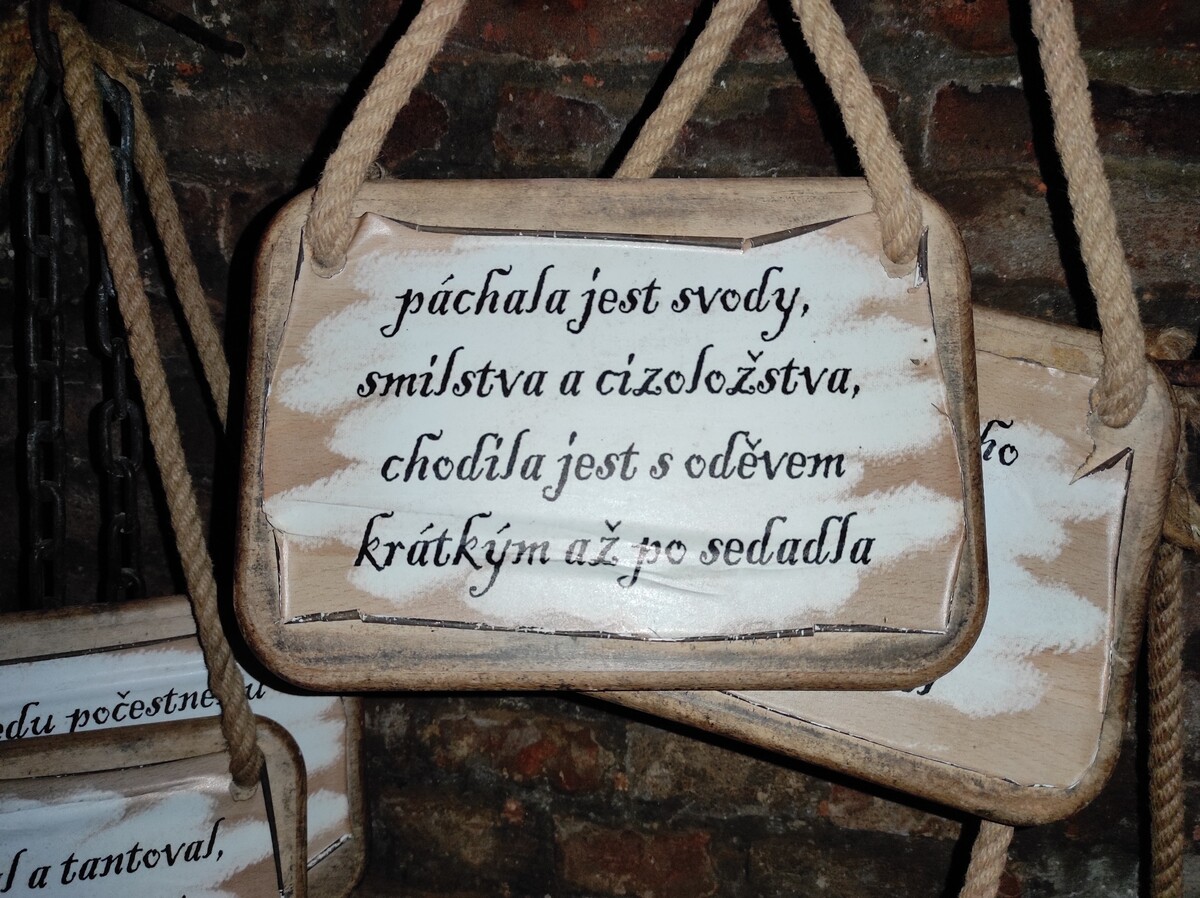 páchala jest svody,
smilstva a cizoložstva,
chodila jest s oděvem
krátkým až po sedadla
počestnému
a tantoval,